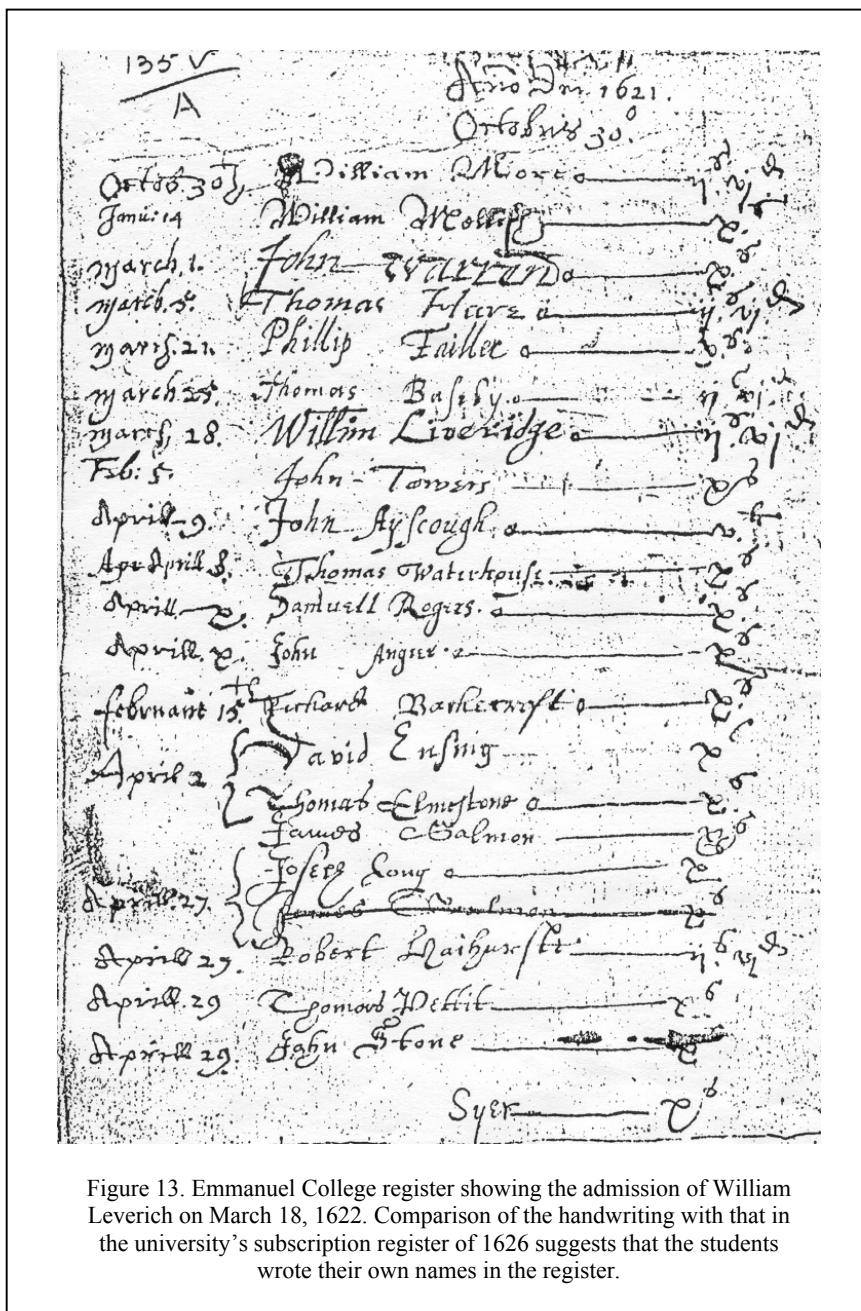 135 v
A
Año Dni. 1621.
Octobris 30°
Octob. 30th William Miort ij.s vj.d
Janu: 14 William x.s
march, 1. John Warran x.s
march. 5. Thomas ij.s vj.d
march. 21. Phillip Tailler
march. 25. Thomas Baseby. ij.s vj.d
march, 28. Willim Liveridge ij.s vj.d
Feb: 5. John - Towers x s
Aprill - 9. John Ayscough. v.
Apr Aprill 8. Thomas Waterhouse x.s
Aprill - x. Samuell Rogers. x.s
Aprill. x. John Angier. x.s
februarie 15th Richard x.s
April 2 David Ensing x s
Thomas Elmestone x.s
James Salmon x s
Aprill. 27. Joseph Long x.s
James Salmon x s
Aprill 29. Robert ij.s vj d
Aprill. 29 Thomas Pettit x s
Aprill 29. John Stone x
Syer x s
Figure 13. Emmanuel College register showing the admission of William
Leverich on March 18, 1622. Comparison of the handwriting with that in
the university’s subscription register of 1626 suggests that the students
wrote their own names in the register.